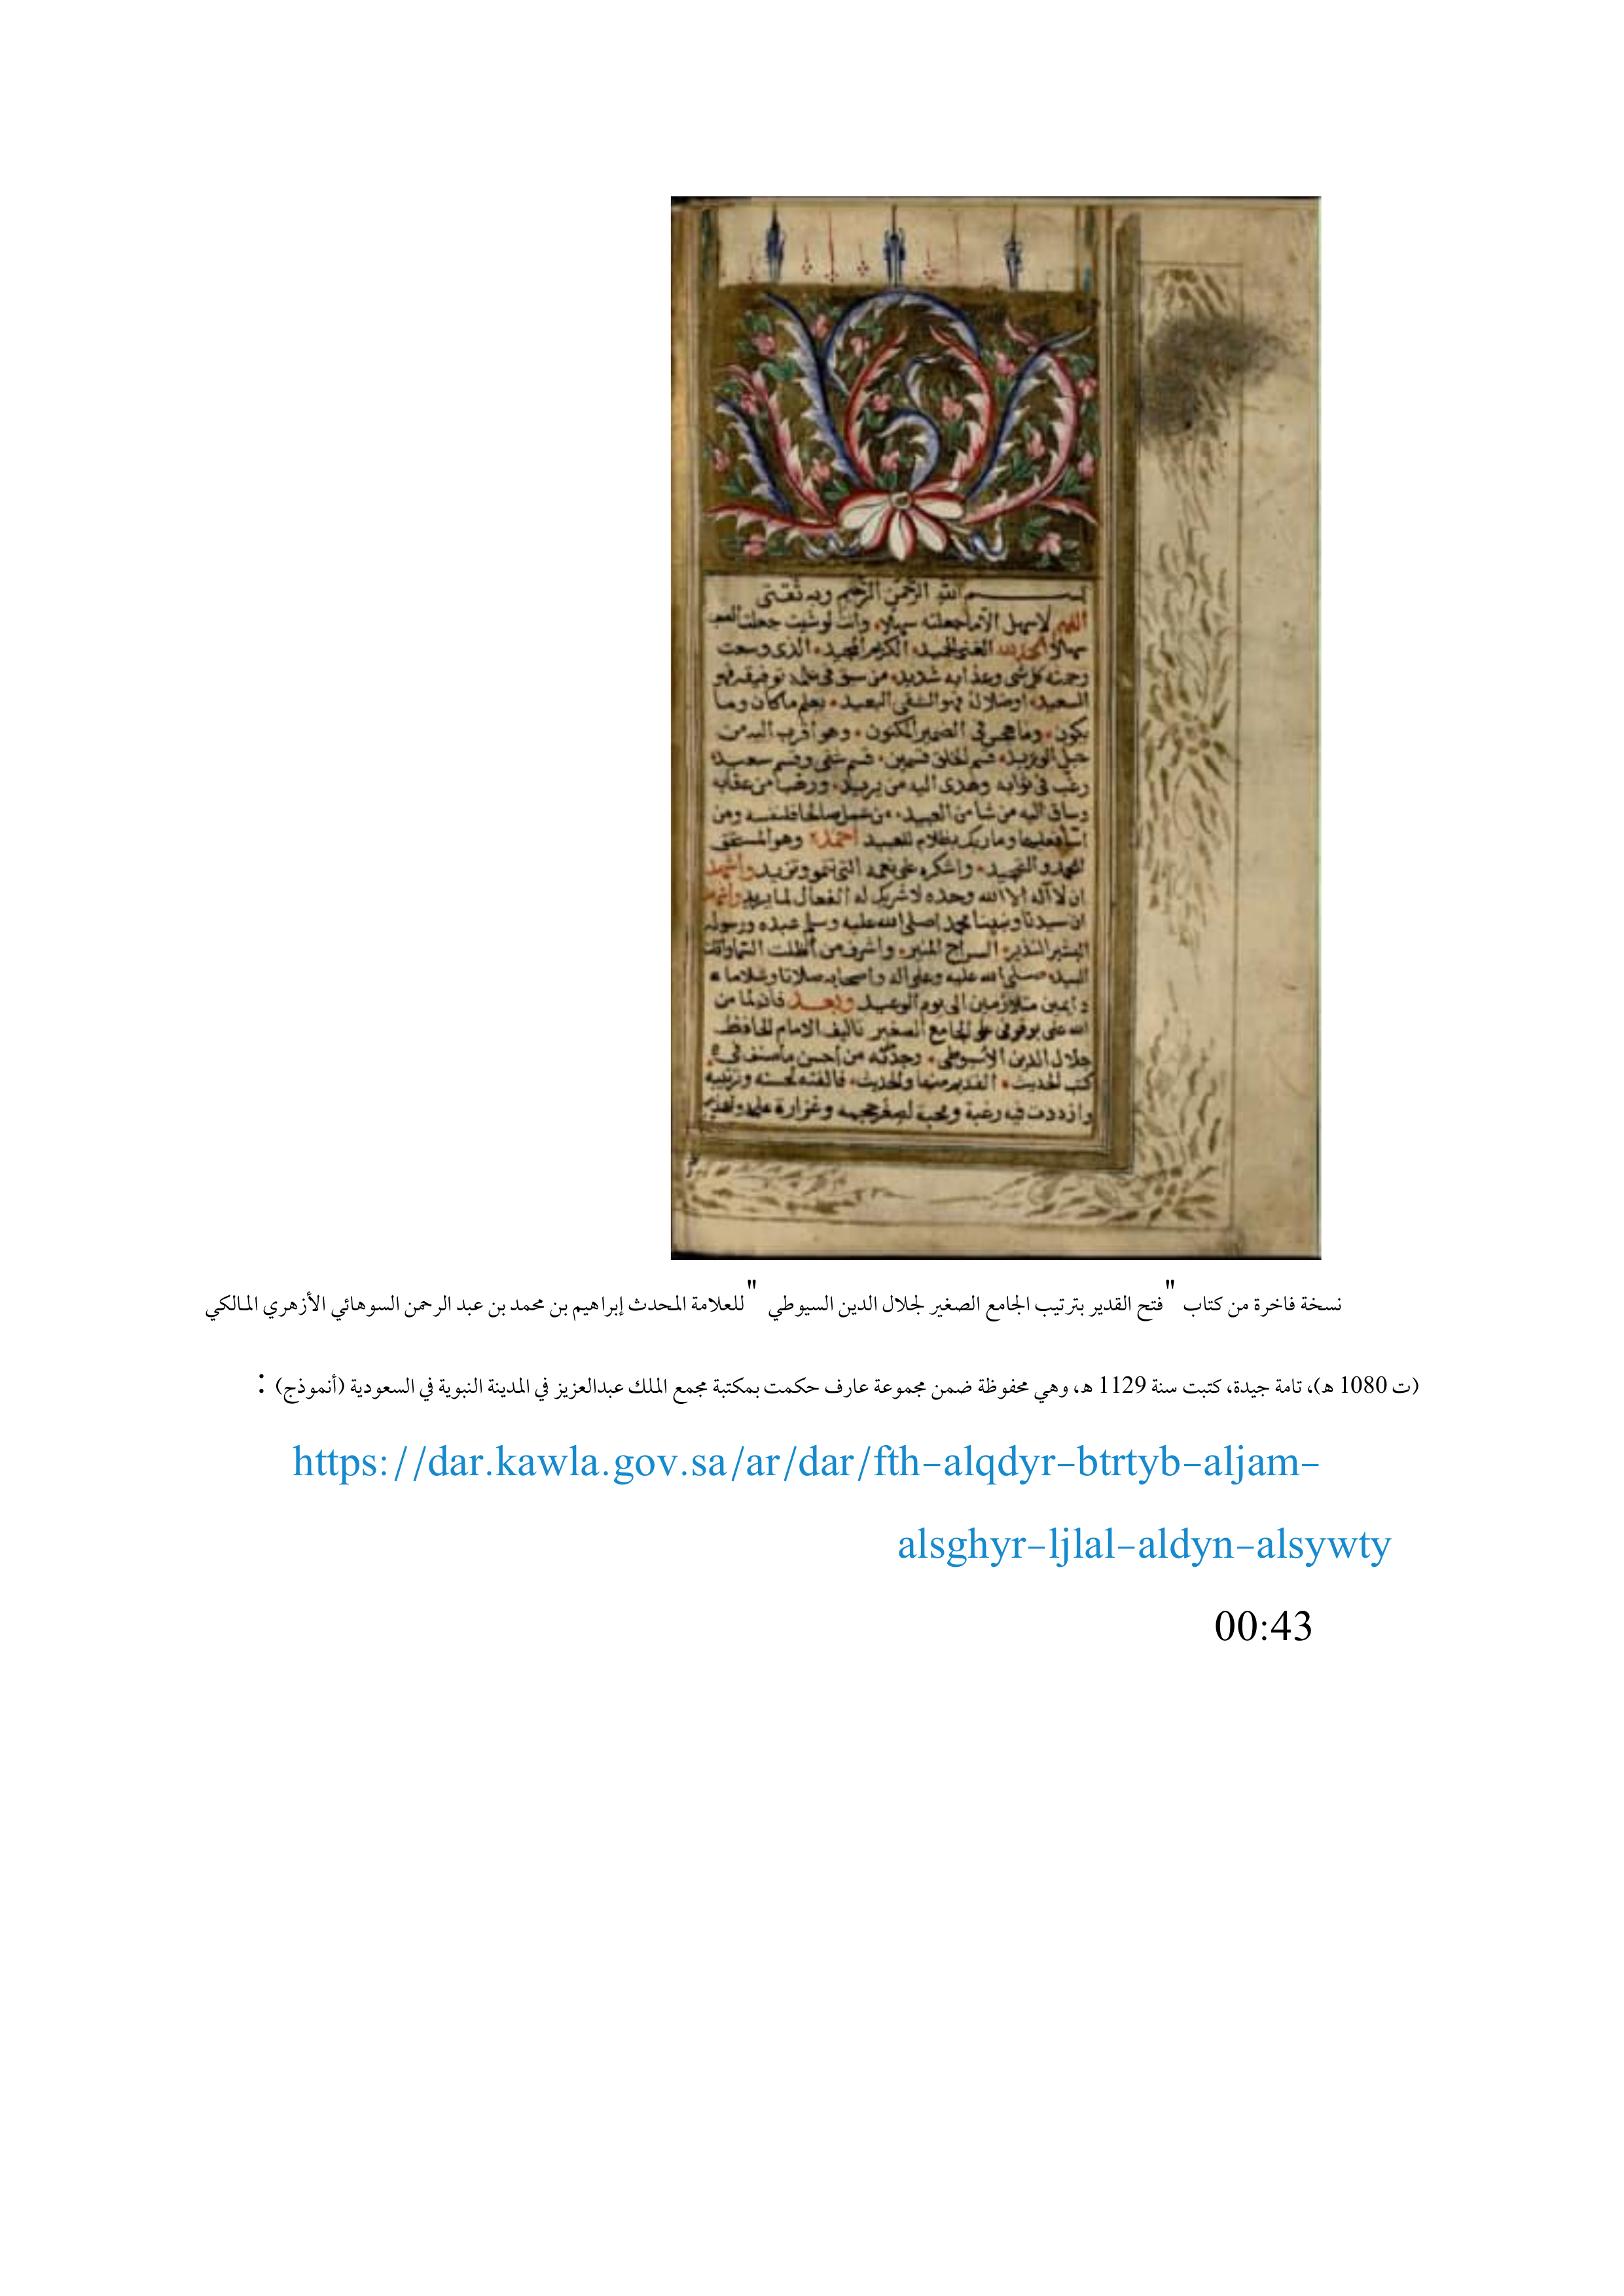 بسم الله الرحمن الرحيم وبه ثقتي
اللهم لاسهل الا ماجعلته سهلا وانت لوشئت جعلت
سهلا الحمد لله الغني الحميد الكريم المجيد الذي وسعت
رحمته كل شي وعذابه شديد من سبق في علمه توفيقه فهو
السعيد اوضلاله فهو الشقي البعيد يعلم ماكان وما
يكون وماهجس في الضمير المكنون وهو اقرب اليه من
حبل الوريد قسم الخلق قسمين قسم شقي وقسم سعيد
رغب في ثوابه وهدى اليه من يريد ورهب من عقابه
وساق اليه من شا من العبيد من عمل صالحا فلنفسه ومن
اسا فعليها وماربك بظلام للعبيد احمده وهو المستحق
للحمد والتمجيد واشكره على نعمه التي تنمو وتزيد واشهد
ان لا اله الا الله وحده لاشريك له الفعال لما يريد واشهد
ان سيدنا ونبينا محمدا صلى الله عليه وسلم عبده ورسوله
البشير النذير السراج المنير واشرف من اظلت السماوات
البيد صلى الله عليه وعلى اله واصحابه صلاة وسلاما
دايمين متلازمين الى يوم الوعيد وبعد فانه لما من
الله على بوقوفي على الجامع الصغير تاليف الامام الحافظ
جلال الدين الاسيوطي وجدته من احسن ماصنف في
كتب الحديث القديم منها والحديث فالفته لحسنه وترتيبه
وازددت فيه رغبة ومحبة لصغر حجمه وغزارة علمه
نسخة فاخرة من كتاب "فتح القدير بترتيب الجامع الصغير لجلال الدين السيوطي " للعلامة المحدث إبراهيم بن محمد بن عبد الرحمن السوهائي الأزهري المالكي
(ت 1080 هـ)، تامة جيدة، كتبت سنة 1129 هـ، وهي محفوظة ضمن مجموعة عارف حكمت بمكتبة مجمع الملك عبدالعزيز في المدينة النبوية في السعودية (أنموذج) :
https://dar.kawla.gov.sa/ar/dar/fth-alqdyr-btrtyb-aljam-
alsghyr-ljlal-aldyn-alsywty
00:43